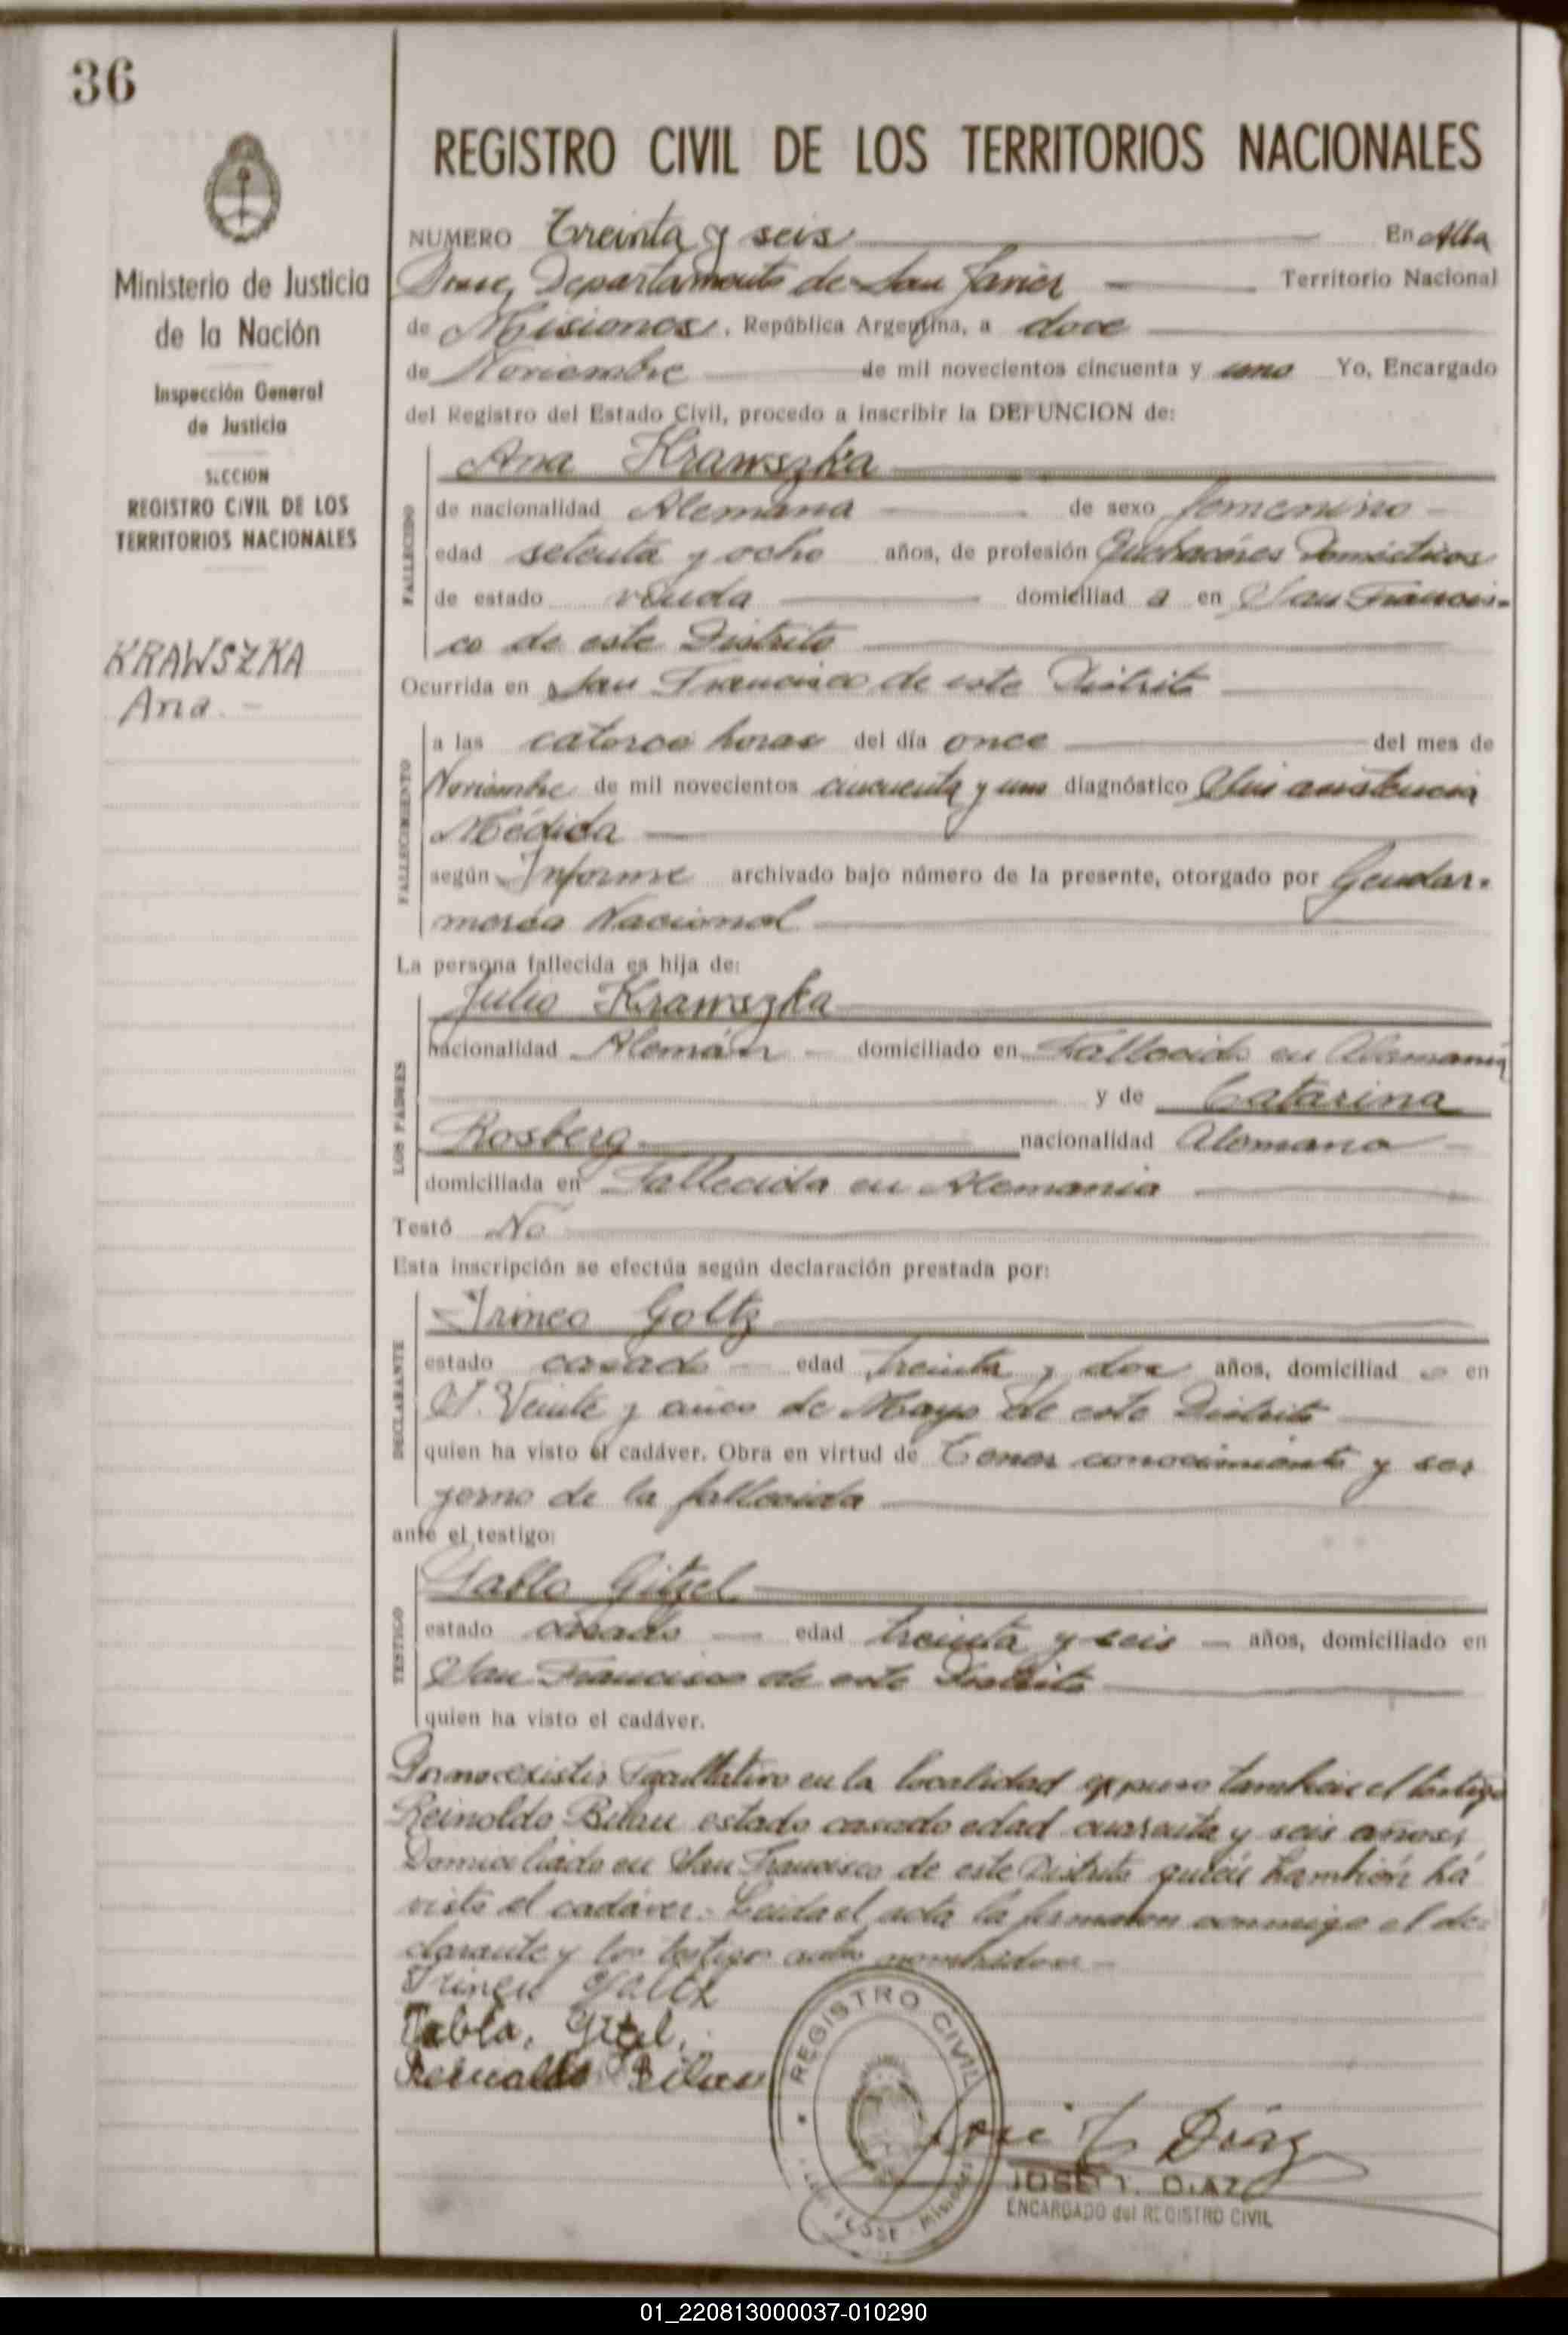 36
REGISTRO CIVIL DE LOS TERRITORIOS NACIONALES
Ministerio de Justicia
de la Nación
Inspección General
de Justicia
SECCION
REGISTRO CIVIL DE LOS
TERRITORIOS NACIONALES
KRAWSZKA
Ana.-
NUMERO Treinta y seis En Alba
Posse, Departamento de San Javier Territorio Nacional
de Misiones, República Argentina, a doce
de Noviembre de mil novecientos cincuenta y uno Yo, Encargado
del Registro del Estado Civil, procedo a inscribir la DEFUNCION de:
FALLECIDO
Ana Krawszka
de nacionalidad Alemana de sexo femenino
edad setenta y ocho años, de profesión Quehacéres Domésticos
de estado viuda domiciliad a en San Francis-
co de este Distrito
Ocurrida en San Francisco de este Distrito
FALLECIMIENTO
a las catorce horas del día once del mes de
Noviembre de mil novecientos cincuenta y uno diagnóstico Sin asistencia
Médida
según Informe archivado bajo número de la presente, otorgado por Gendar-
mería Nacional
La persona fallecida es hija de:
LOS PADRES
Julio Krawszka
nacionalidad Alemán domiciliado en Fallecido en Alemania
y de Catarina
Rosberg nacionalidad Alemana
domiciliada en Fallecida en Alemania
Testó No
Esta inscripción se efectúa según declaración prestada por:
DECLARANTE
Irineo Goltz
estado casado edad treinta y dos años, domiciliad o en
Veinte y cinco de Mayo de este Distrito
quien ha visto el cadáver. Obra en virtud de Tener conocimiento y ser
yerno de la fallecida
ante el testigo:
TESTIGO
Pablo Gitzel
estado casado edad treinta y seis años, domiciliado en
San Francisco de este Distrito
quien ha visto el cadáver.
Por no existir Facultativo en la localidad expuso también el testigo
Reinoldo Bilau estado casado edad cuarenta y seis años,
Domiciliado en San Francisco de este Distrito quién también há
visto el cadáver.- Leida el acta la firmaron conmigo el de-
clarante y los testigos antes nombrados.-
Irineu Goltz
Pablo. Gitzel.
Reinoldo Bilau
REGISTRO CIVIL
POSSE - Misiones
José I. Díaz
JOSE I. DIAZ
ENCARGADO del REGISTRO CIVIL
01_220813000037-010290